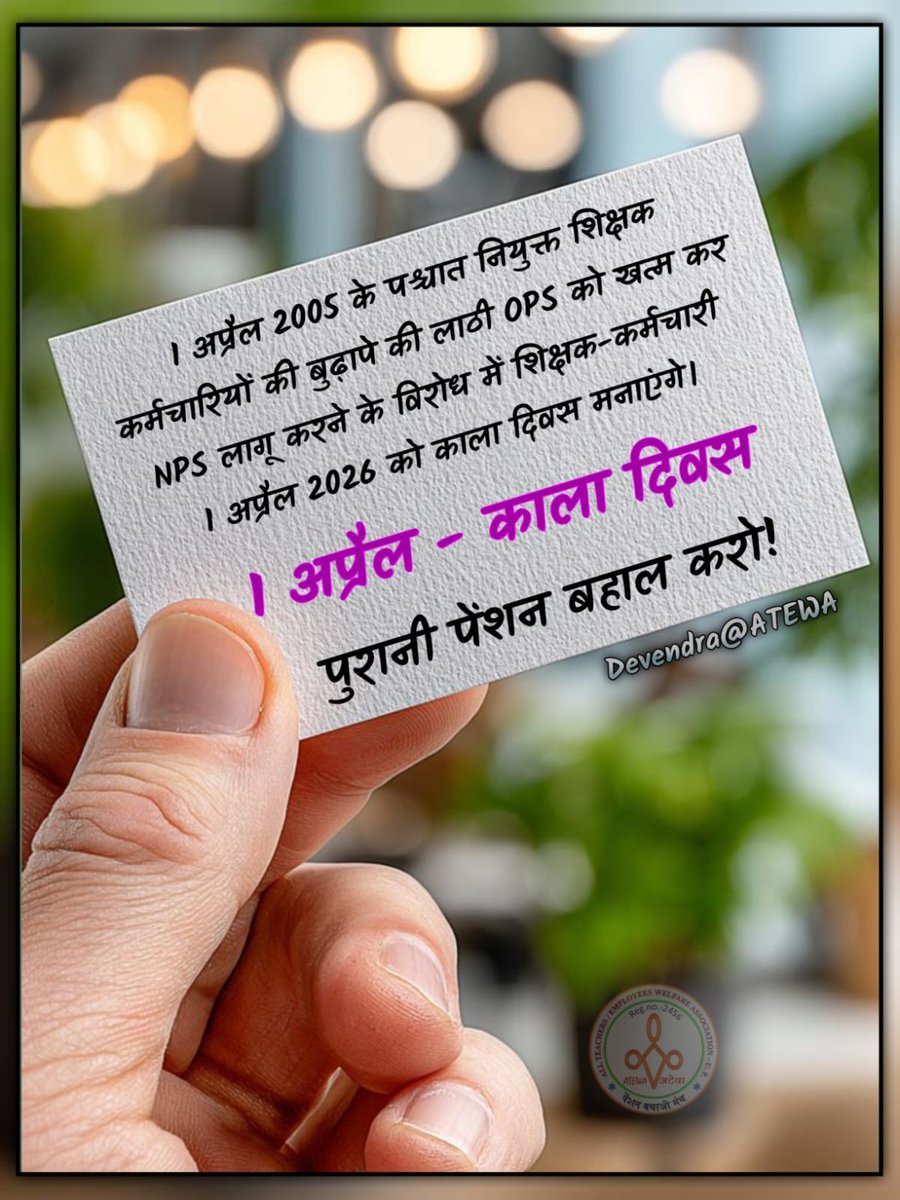 1 अप्रैल 2005 के पश्चात नियुक्त शिक्षक
कर्मचारियों की बुढ़ापे की लाठी OPS को खत्म कर
NPS लागू करने के विरोध में शिक्षक-कर्मचारी
1 अप्रैल 2026 को काला दिवस मनाएंगे।
1 अप्रैल - काला दिवस
पुरानी पेंशन बहाल करो!
Devendra@ATEWA
ALL TEACHERS / EMPLOYEES WELFARE ASSOCIATION - U. P.
Reg.no.-2456
ATEWA अटेवा
पेंशन बचाओ मंच